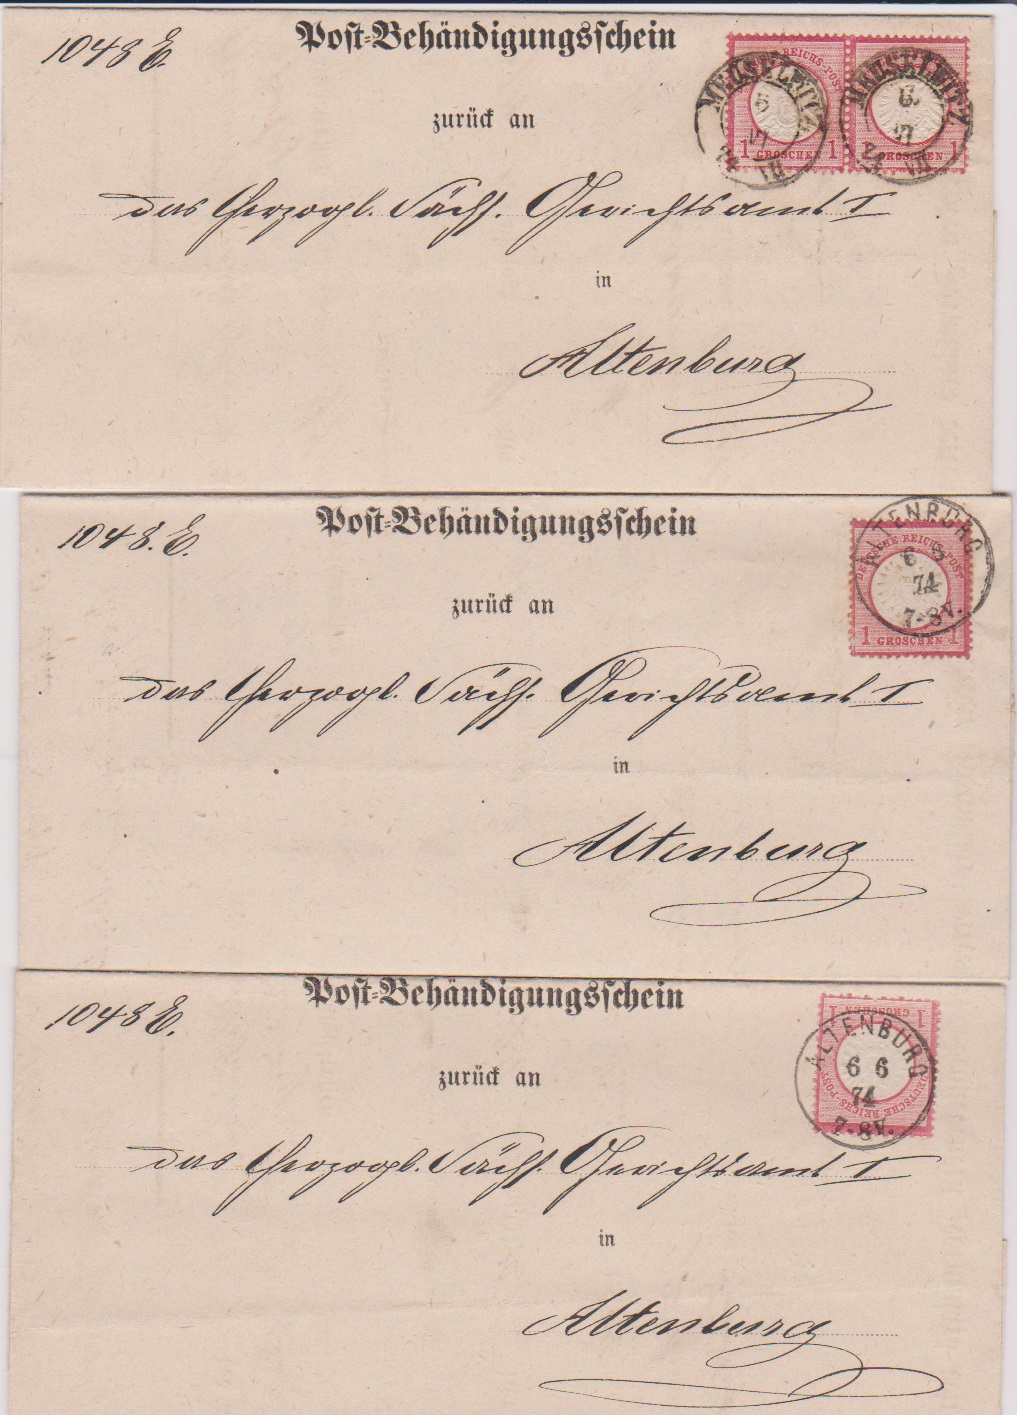 1048 E.
Post-Behändigungsschein
REICHS-POST
1 GROSCHEN 1
GROSCHEN 1
MEUSELWITZ
6
VI
74
MEUSELWITZ
6.
VI
74
zurück an
das Herzogl. Sächs. Gerichtsamt I
in
Altenburg
1048. E.
Post-Behändigungsschein
DEUTSCHE REICHS-POST
1 GROSCHEN 1
ALTENBURG
6
74
7-8V.
zurück an
das Herzogl. Sächs. Gerichtsamt I
in
Altenburg
1048 E.
Post-Behändigungsschein
1 GROSCHEN 1
DEUTSCHE REICHS-POST
ALTENBURG
6 6
74
7-8V.
zurück an
das Herzogl. Sächs. Gerichtsamt I
in
Altenburg